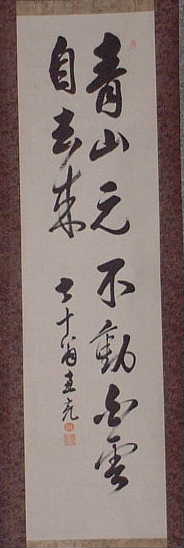 青山元不動白雲
自去来
七十翁直亮